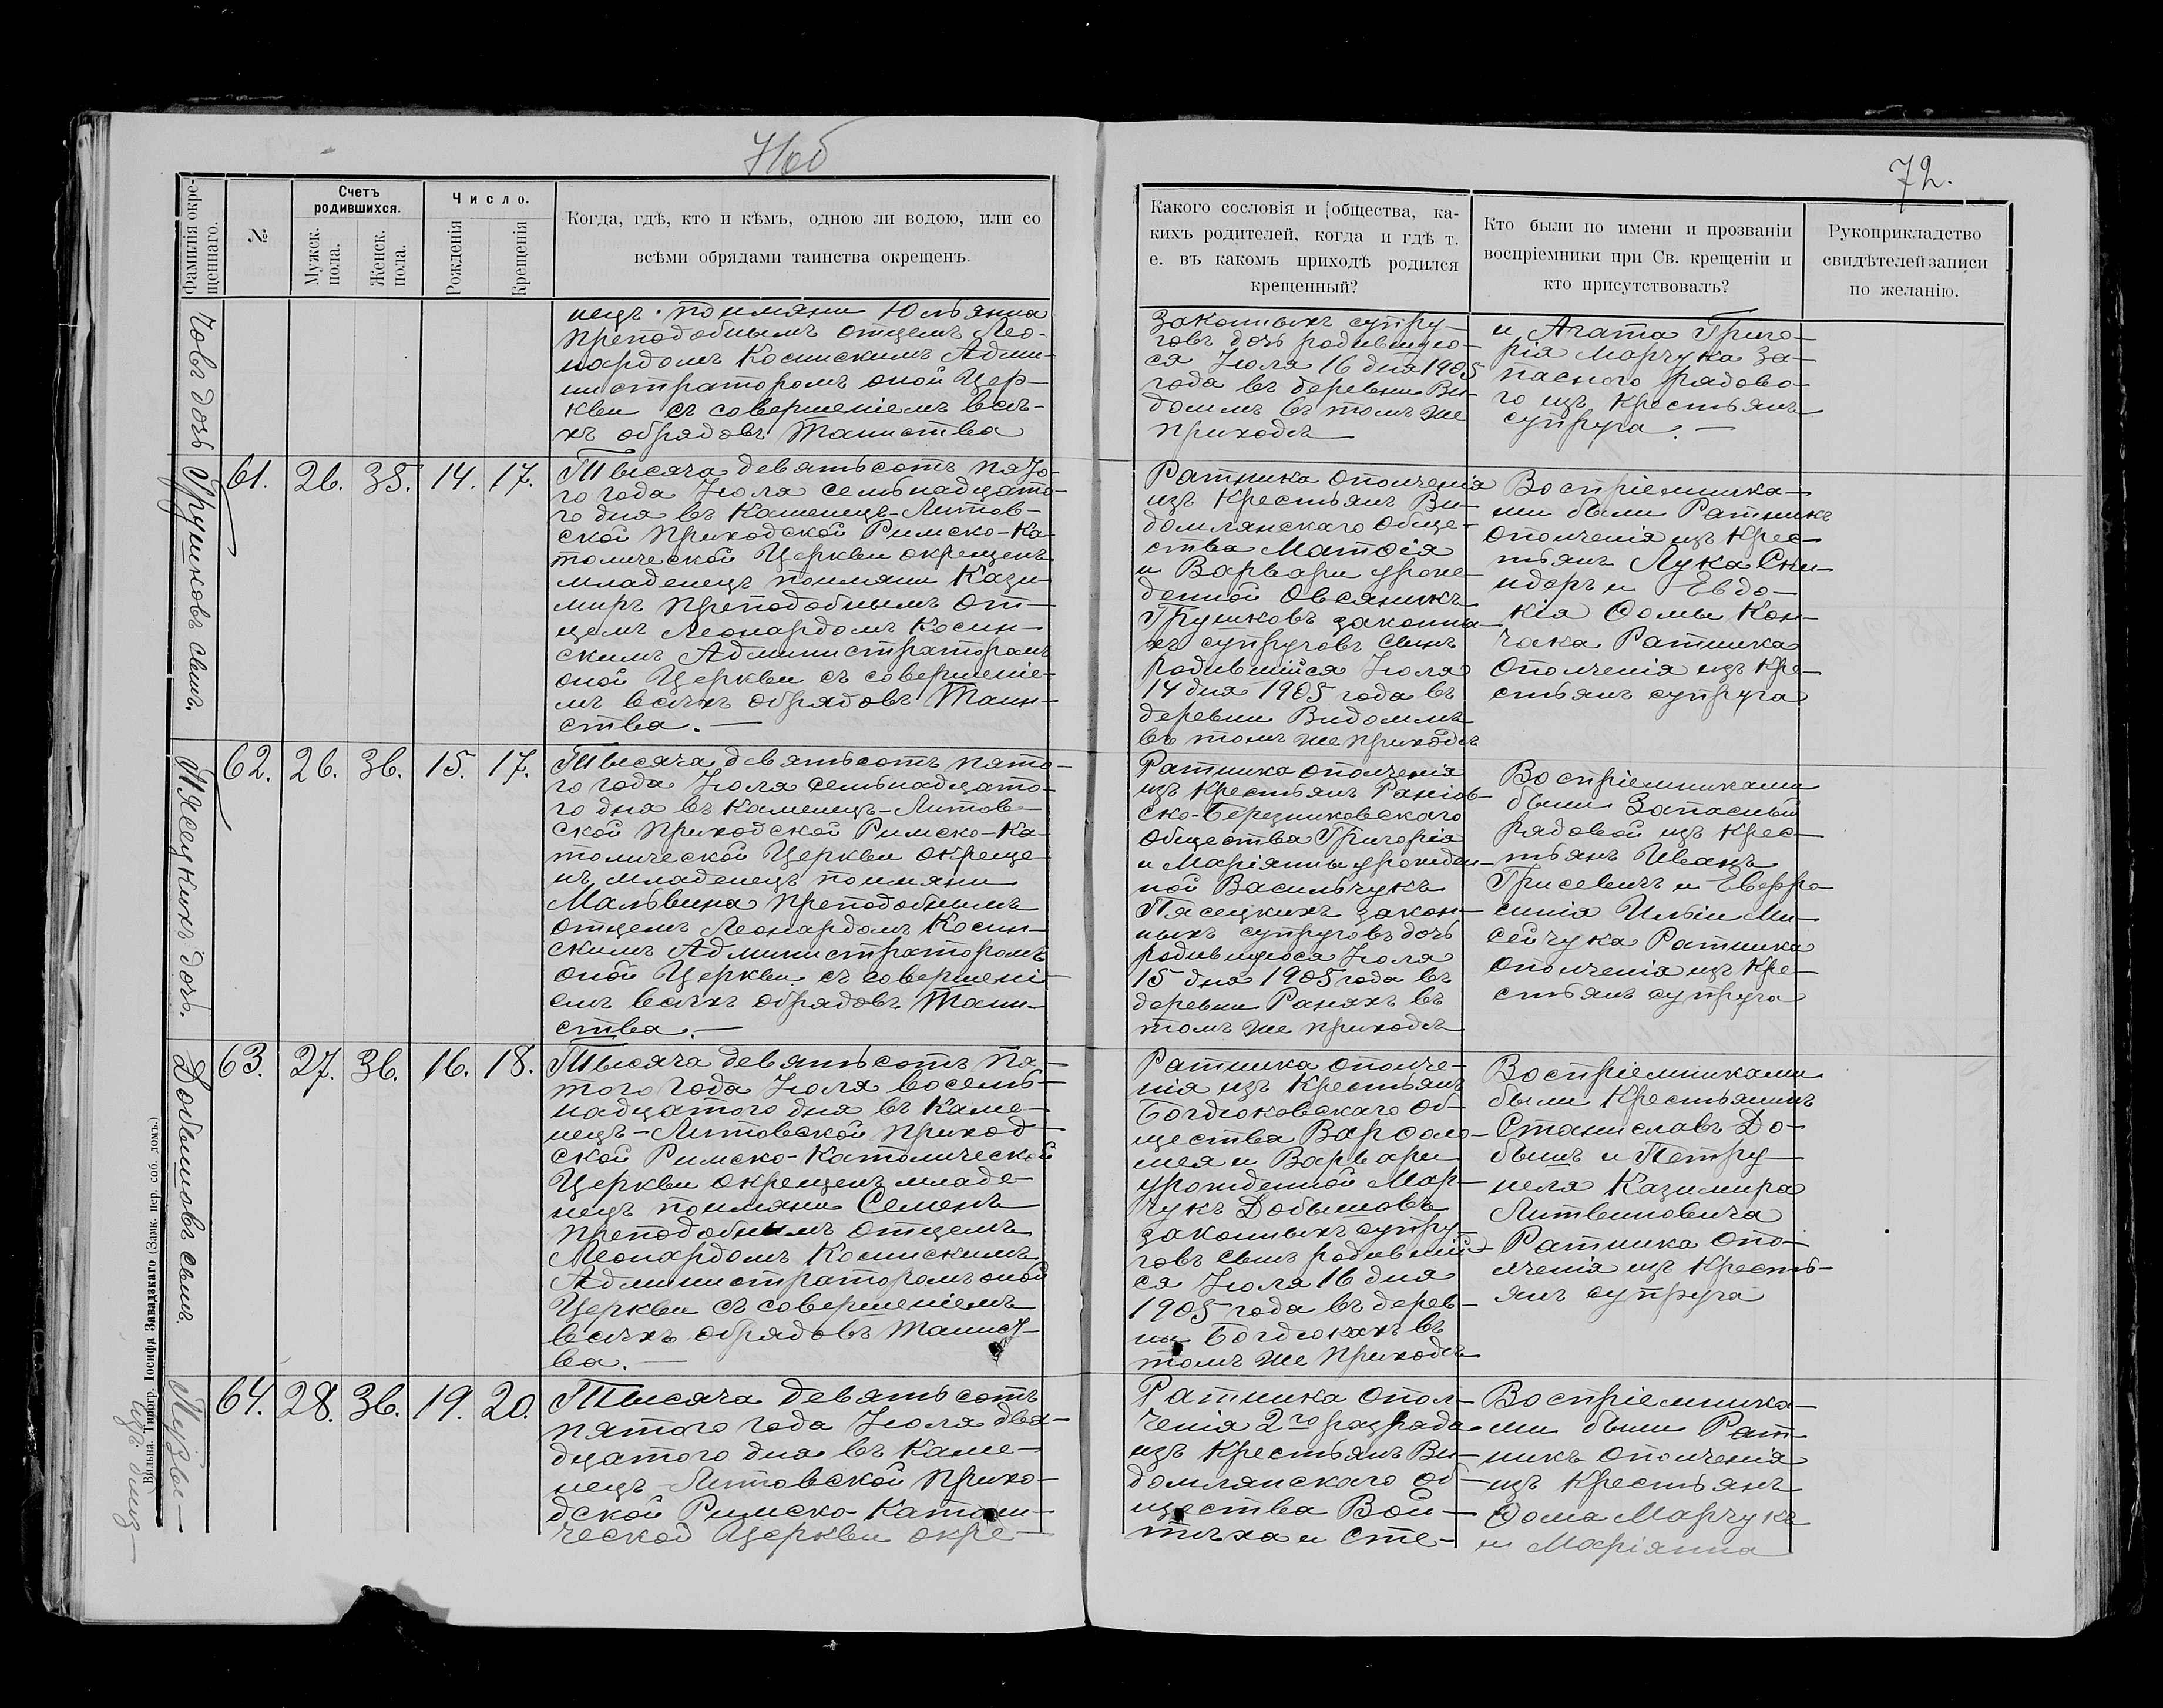 72.
Фамилія окре-
щеннаго.
№
Счетъ
родившихся.
Мужск.
пола.
Женск.
пола.
Число.
Рожденія
Крещенія
Когда, гдѣ, кто и кѣмъ, одною ли водою, или со
всѣми обрядами таинства окрещенъ.
Какого сословія и общества, ка-
кихъ родителей, когда и гдѣ т.
е. въ какомъ приходѣ родился
крещенный?
Кто были по имени и прозванію
воспріемники при Св. крещеніи и
кто присутствовалъ?
Рукоприкладство
свидѣтелей записи
по желанію.
човъ дочь
нецъ поимяни Юльянна
Преподобнымъ Отцемъ Лео-
нардомъ Косинскимъ Адми-
нистраторомъ оной Цер-
кви съ совершеніемъ всѣ-
хъ обрядовъ Таинства
законныхъ супру-
говъ дочь родившую-
ся Іюля 16 дня 1905
года въ деревни Ви-
домлѣ въ томъ же
приходѣ
и Агата Григо-
рія Марчука за-
паснаго рядово-
го изъ крестьянъ
супруга. —
Грушковъ сынъ.
61. 26. 35. 14. 17.
Тысяча девятьсотъ пято-
го года Іюля семьнадцато-
го дня въ Каменецъ-Литов-
ской Приходской Римско-Ка-
толической Церкви окрещенъ
младенецъ поимяни Кази-
миръ Преподобнымъ От-
цемъ Леонардомъ Косин-
скимъ Администраторомъ
оной Церкви съ совершеніе-
мъ всѣхъ обрядовъ Таин-
ства. —
Ратника ополченія
изъ Крестьянъ Ви-
домлянскаго обще-
ства Матѳія
и Варвари уроже-
денной Овсяникъ
Грушковъ законны-
хъ супруговъ сынъ
родившійся Іюля
14 дня 1905 года въ
деревни Видомлѣ
въ томъ же приходѣ
Воспріемника-
ми были Ратникъ
ополченія изъ Крес-
тьянъ Лука Сни-
идеръ и Евдо-
кія Ѳомы Кон-
чака Ратника
ополченія изъ Кре-
стьянъ супруга
Пясецкихъ дочь.
62. 26. 36. 15. 17.
Тысяча девятьсотъ пято-
го года Іюля семьнадцато-
го дня въ Каменецъ-Литов-
ской Приходской Римско-Ка-
толической Церкви окреще-
нъ младенецъ поимяни
Мальвина Преподобнымъ
Отцемъ Леонардомъ Косин-
скимъ Администраторомъ
оной Церкви съ совершені-
емъ всѣхъ обрядовъ Таин-
ства. —
Ратника ополченія
изъ Крестьянъ
ско-Березниковскаго
общества Григорія
и Маріянны урожден-
ной Васильчукъ
Пясецкихъ закон-
ныхъ супруговъ дочь
родившуюся Іюля
15 дня 1905 года въ
деревни Раняхъ въ
томъ же приходѣ
Воспріемниками
были Запасный
рядовой изъ крес-
тьянъ Иванъ
Грисевичъ и Евфро-
синія Ильи Ми-
сейчука Ратника
ополченія изъ Кре-
стьянъ супруга
Добышовъ сынъ.
63. 27. 36. 16. 18.
Тысяча девятьсотъ пя-
того года Іюля восемь-
надцатого дня въ Каме-
нецъ-Литовской Приход-
ской Римско-Католической
Церкви окрещенъ младе-
нецъ поимяни Семенъ
Преподобнымъ Отцемъ
Леонардомъ Косинскимъ
Администраторомъ оной
Церкви съ совершеніемъ
всѣхъ обрядовъ Таинст-
ва. —
Ратника ополче-
нія изъ Крестьянъ
Богдюковскаго об-
щества Варѳоло-
мея и Варвари
урожденной Мар-
чукъ Добышовъ
законныхъ супру-
говъ сынъ родившій-
ся Іюля 16 дня
1905 года въ дерев-
ни Богдюкахъ въ
томъ же приходѣ
Воспріемниками
были Крестьянинъ
Станиславъ До-
бышъ и Петру-
неля Казимира
Литвиновича
Ратника опо-
лченія изъ Кресть-
янъ супруга
64. 28. 36. 19. 20.
Тысяча девятьсотъ
пятого года Іюля два-
дцатого дня въ Каме-
нецъ-Литовской Прихо-
дской Римско-Католи-
ческой Церкви окре-
Ратника опол-
ченія 2го разряда
изъ Крестьянъ Ви-
домлянскаго об-
щества Вой-
тѣха и Сте-
Воспріемника-
ми были Рат-
никъ ополченія
изъ Крестьянъ
Ѳома Марчукъ
и Маріянна
Вильна. Типогр. Іосифа Завадзкаго (Замк. пер. соб. домъ.)